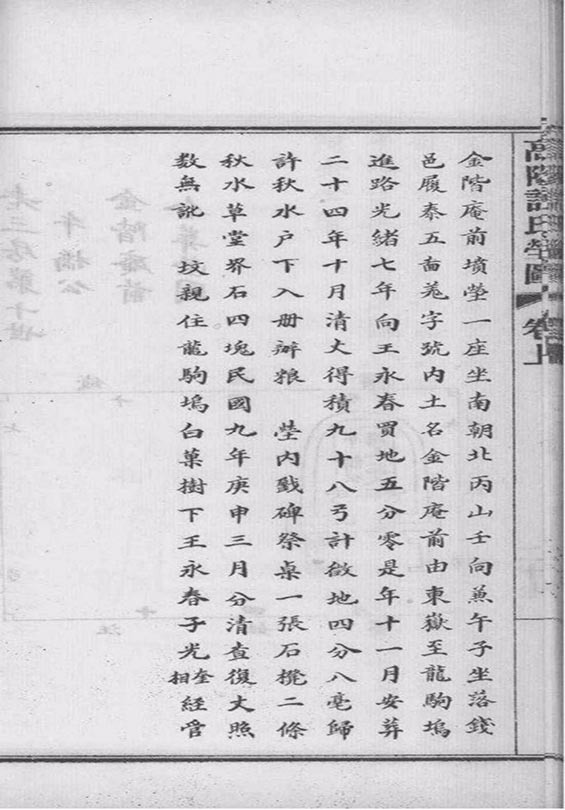 高陽許氏塋圖 卷上
金階庵前墳塋一座坐南朝北丙山壬向兼午子坐落錢
邑履泰五啚羌字號內土名金階庵前由東嶽至龍駒塢
進路光緒七年向王永春買地五分零是年十一月安葬
二十四年十月清丈得積九十八弓計徵地四分八毫歸
許秋水户下入册辦粮 塋內戤碑祭桌一張石櫈二條
秋水草堂界石四塊民國九年庚申三月分清查復丈照
数無訛 坟親住龍駒塢白菓樹下王永春子光奎相經管